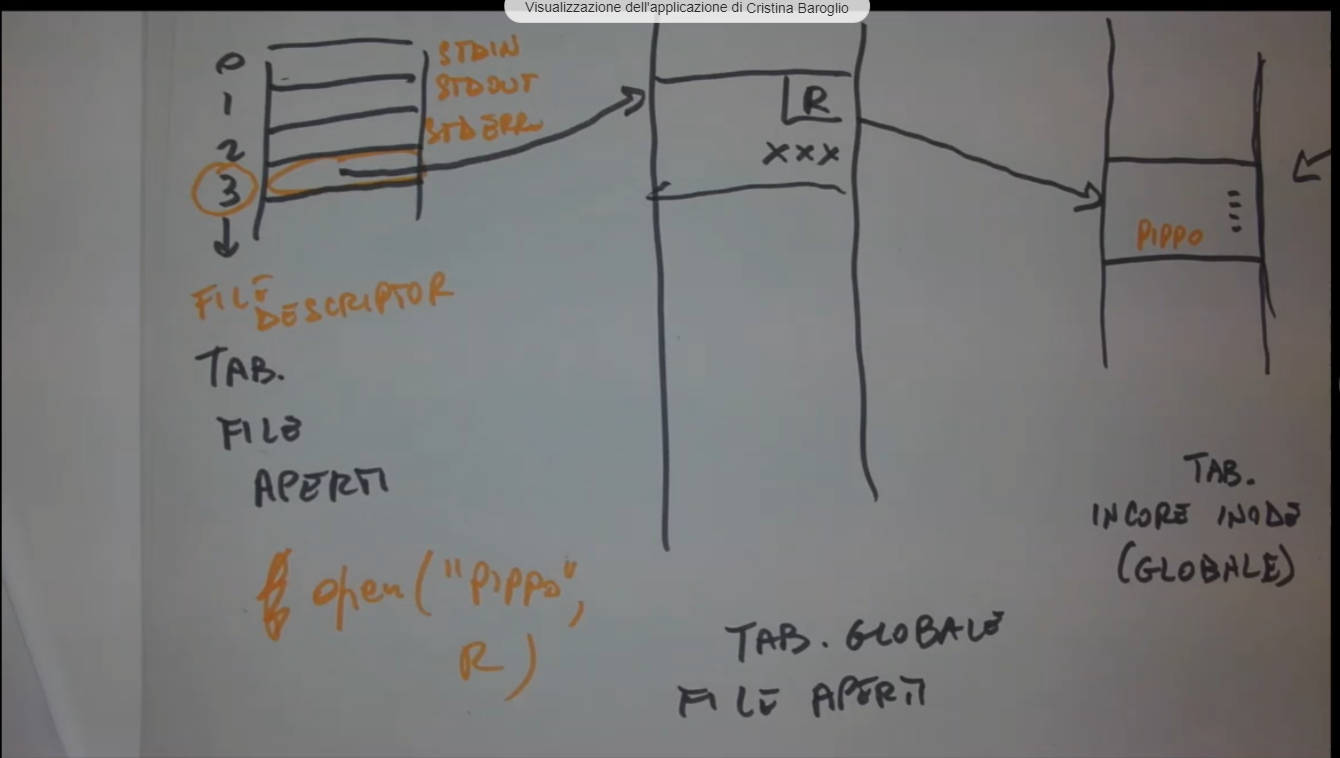 Visualizzazione dell'applicazione di Cristina Baroglio
0
STDIN
1
STDOUT
2
STDERR
3
R
XXX
PIPPO
FILE
DESCRIPTOR
TAB.
FILE
APERTI
open("PIPPO",
R)
TAB. GLOBALE
FILE APERTI
TAB.
INCORE INODE
(GLOBALE)